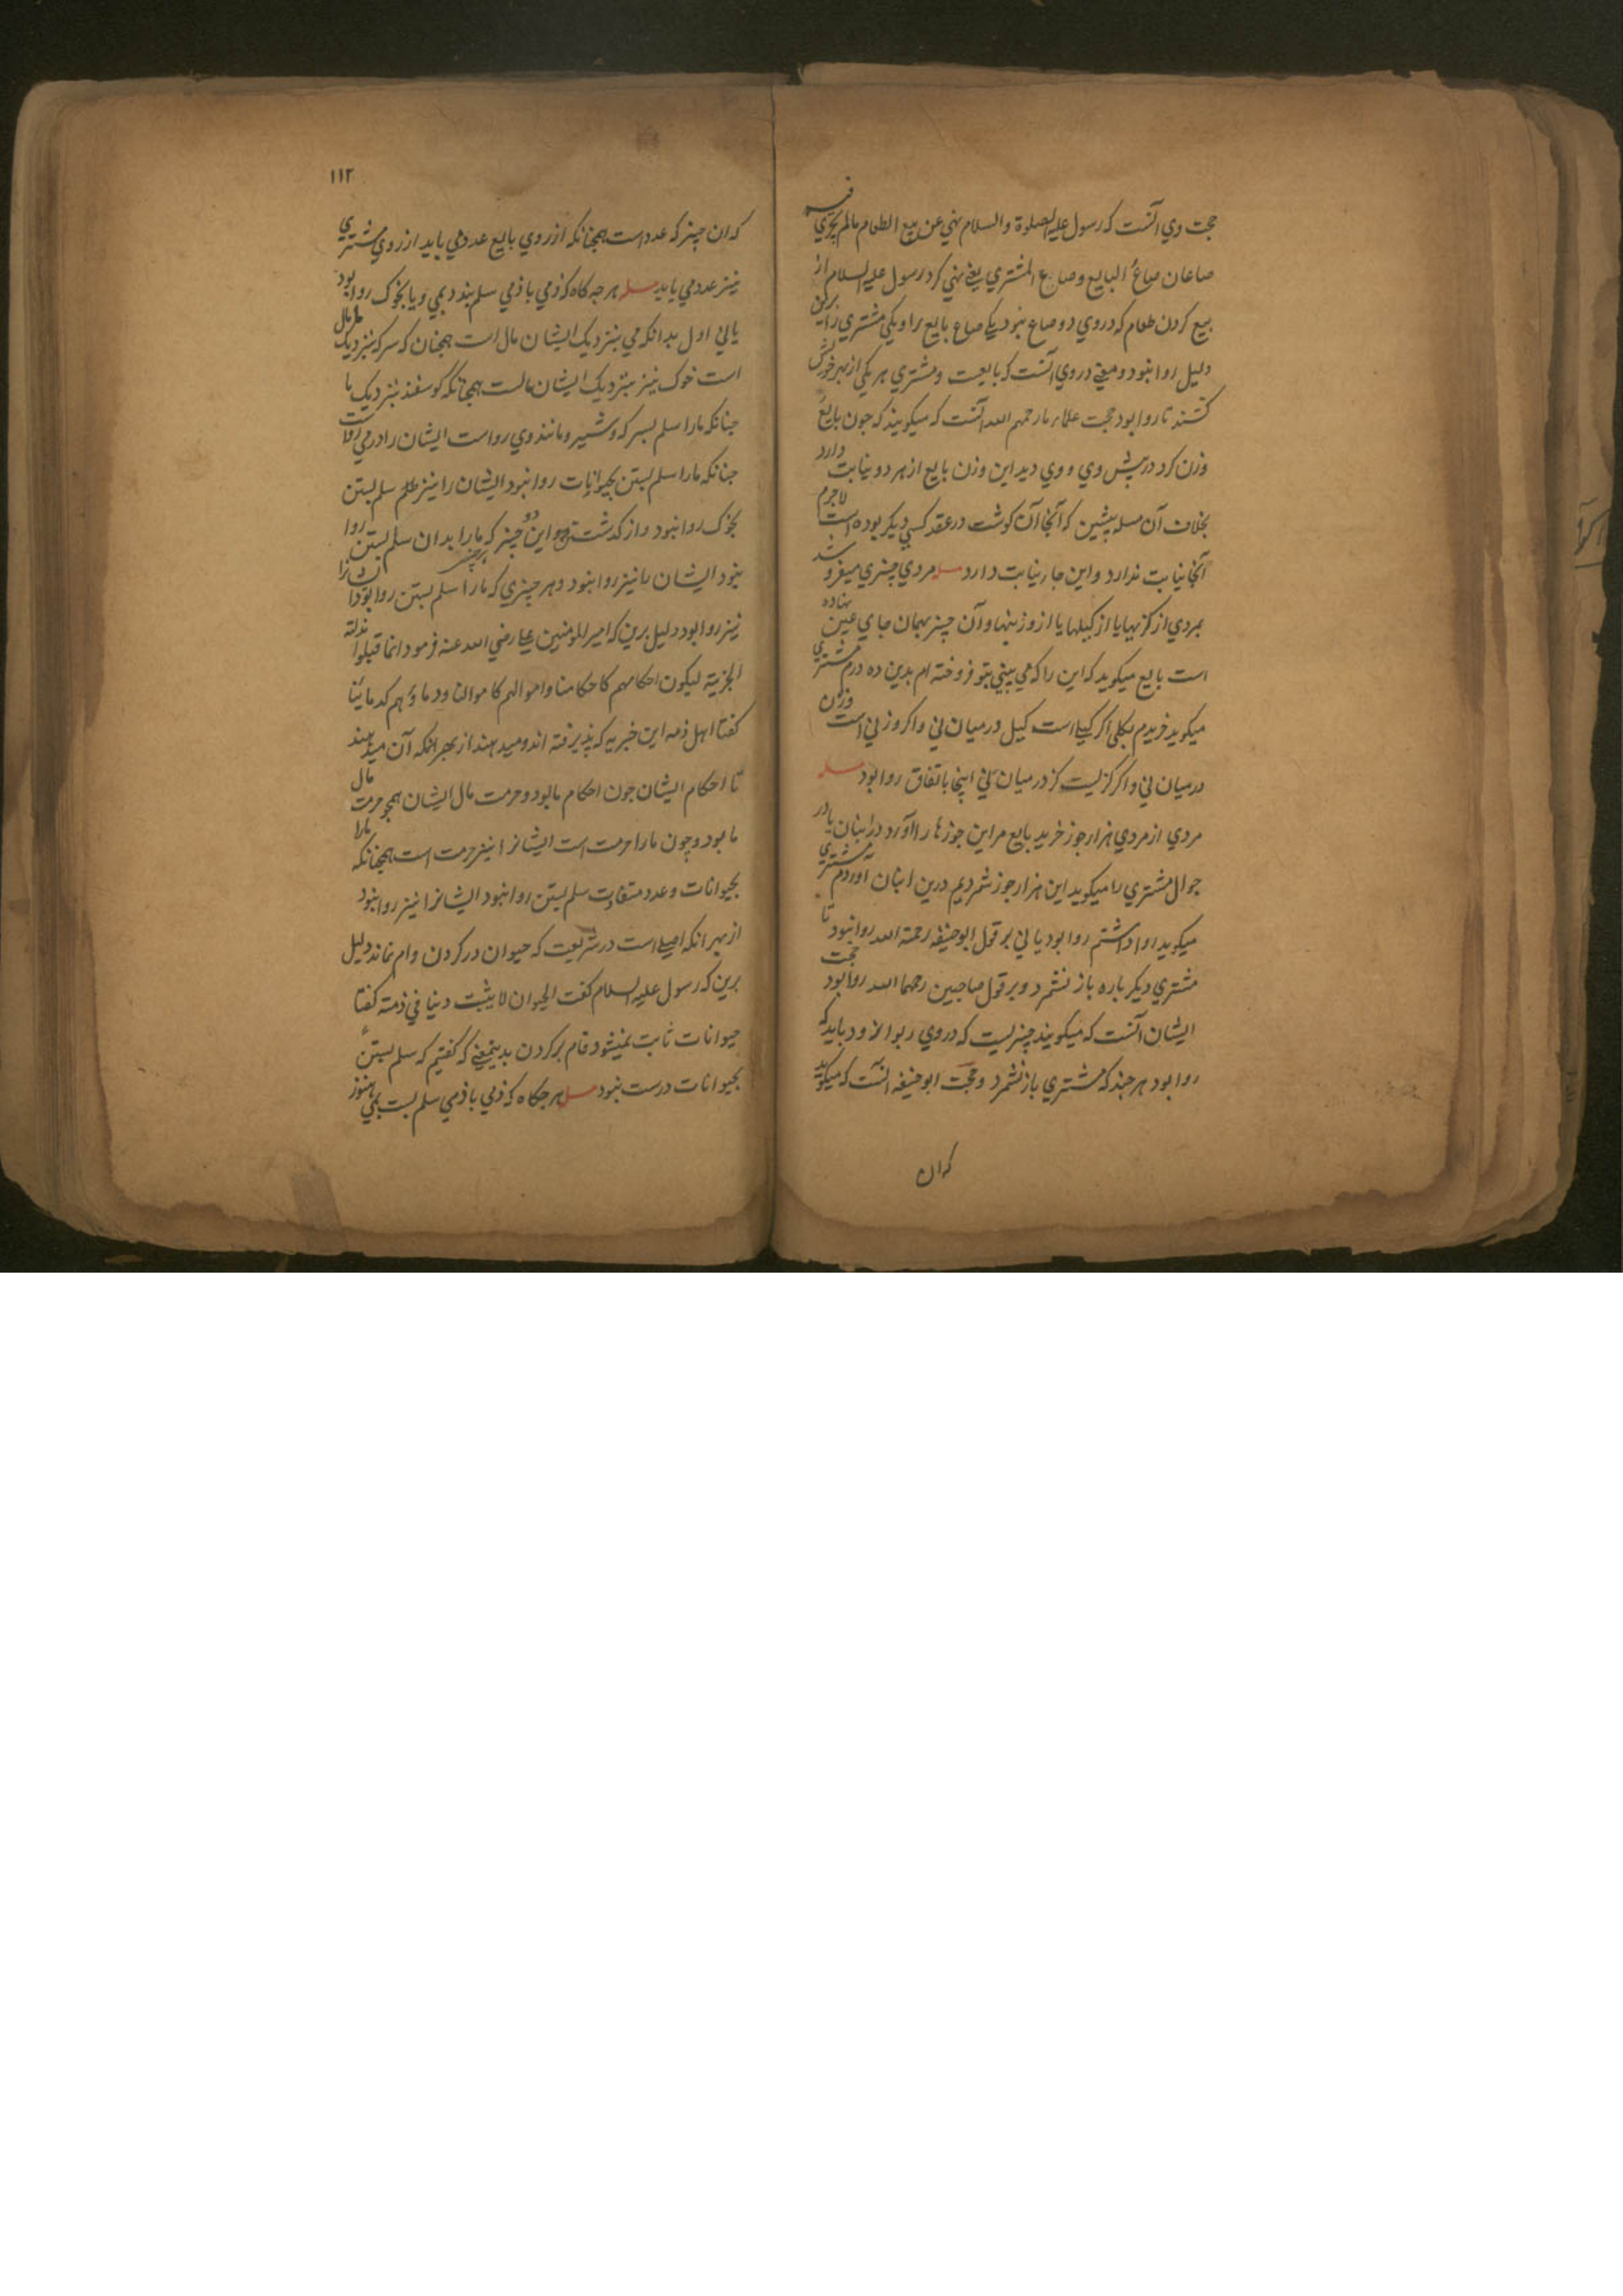 حجت وي آنست كه رسول عليه الصلوة والسلام نهي عن بيع الطعام مالم يجري فيه
صاعان صاع البايع وصاع المشتري يعني نهي كرد رسول عليه السلام از
بيع كردن طعام كه دروي دو صاع نبود يكي صاع بايع را ويكي مشتري را برين
دليل روا نبود ومعني دروي آنست كه بايعست ومشتري هر يكي از بهر خويش
كنند تا روا بود حجت علماء ما رحمهم الله آنست كه ميكويند كه جون بايع
وزن كرد در پيش وي و وي ديد اين وزن بايع از هر دو نيابت دارد
بخلاف آن مسله پيشين كه آنجا آن كوشت در عقد كسي ديكر بوده است لاجرم
آنجا نيابت ندارد واين جا نيابت دارد مسله مردي چيزي ميفروشد
بمردي از كزيها يا از كيلها يا از وزنيها وآن چيز بهمان جاي عين نهاده
است بايع ميكويد كه اين را كه مي بيني بتو فروخته ام بدين ده درم مشتري
ميكويد خريدم بكلي اكر كيلي است كيل درميان ني واكر وزني است وزن
درميان ني واكر كزيست كز درميان ني اينجا باتفاق روا بود مسله
مردي از مردي هزار جوز خريد بايع مراين جوزها را آورد در انبان يا در
جوال مشتري را ميكويد اين هزار جوز شمرديم درين انبان آوردم مشتري
ميكويد روا داشتم روا بود يا ني بر قول ابوحنيفه رحمة الله روا نبود تا
مشتري ديكر باره باز نشمرد وبر قول صاحبين رحمها الله روا بود حجت
ايشان آنست كه ميكويند چيزيست كه دروي ربوا نرود بايد كه
روا بود هر چند كه مشتري باز نشمرد وحجت ابوحنيفه آنست كه ميكويد
كه ان
١١٢
كه ان چيز كه عدد است همچنانكه از روي بايع عددمي بايد از روي مشتري
نيز عدد مي بايد مسله هر چه كاه كه ذمي با ذمي سلم بندد بمي ويا بخوك روا بود
يا ني اول بدانكه مي بنزديك ايشان مال است همچنان كه سركه بنزديك ما مال
است خوك نيز بنزديك ايشان مالست همچنانكه كوسفند بنزديك ما
چنانكه مارا سلم بسركه وشير ومانند وي رواست ايشان را در مي رواست
چنانكه مارا سلم بستن بحيوانات روا نبود ايشان را نيز سلم بستن
بخوك روا نبود واز كذشت اين دو چيز هر چيز كه مارا بدان سلم بستن روا
نبود ايشان را نيز روا نبود وهر چيزي كه مارا سلم بستن روا بود ايشانرا
نيز روا بود دليل برين كه امير المومنين علي رضي الله عنه فرمود انما قبلوا
الجزية ليكون احكامهم كاحكامنا واموالهم كاموالنا ودماؤهم كدمائنا
كفتا اهل ذمه اين جزيه كه پذيرفته اند وميدهند از بهر انكه آن ميدهند
تا احكام ايشان چون احكام ما بود وحرمت مال ايشان همچو حرمت مال
ما بود وچون مارا حرمت است ايشانرا نيز حرمت است همچنانكه مارا
بحيوانات وعدد متفاوت سلم بستن روا نبود ايشانرا نيز روا نبود
از بهر انكه اصلي است در شريعت كه حيوان در كردن وام نماند دليل
برين كه رسول عليه السلام كفت الحيوان لا يثبت دينا في ذمته كفتا
حيوانات ثابت نميشود فام بر كردن بدينمعني كه كفتيم كه سلم بستن
بحيوانات درست نبود مسله هرچكاه كه ذمي با ذمي سلم بست بمي هنوز